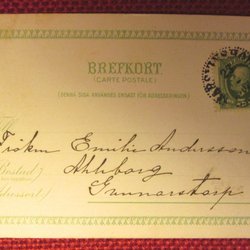 BREFKORT.
(CARTE POSTALE)
(DENNA SIDA ANVÄNDES ENDAST FÖR ADRESSERINGEN.)
Fröken Emilie Andersson
Ahleborg
(Bostad)
Gunnarstorp
(Adressort.)